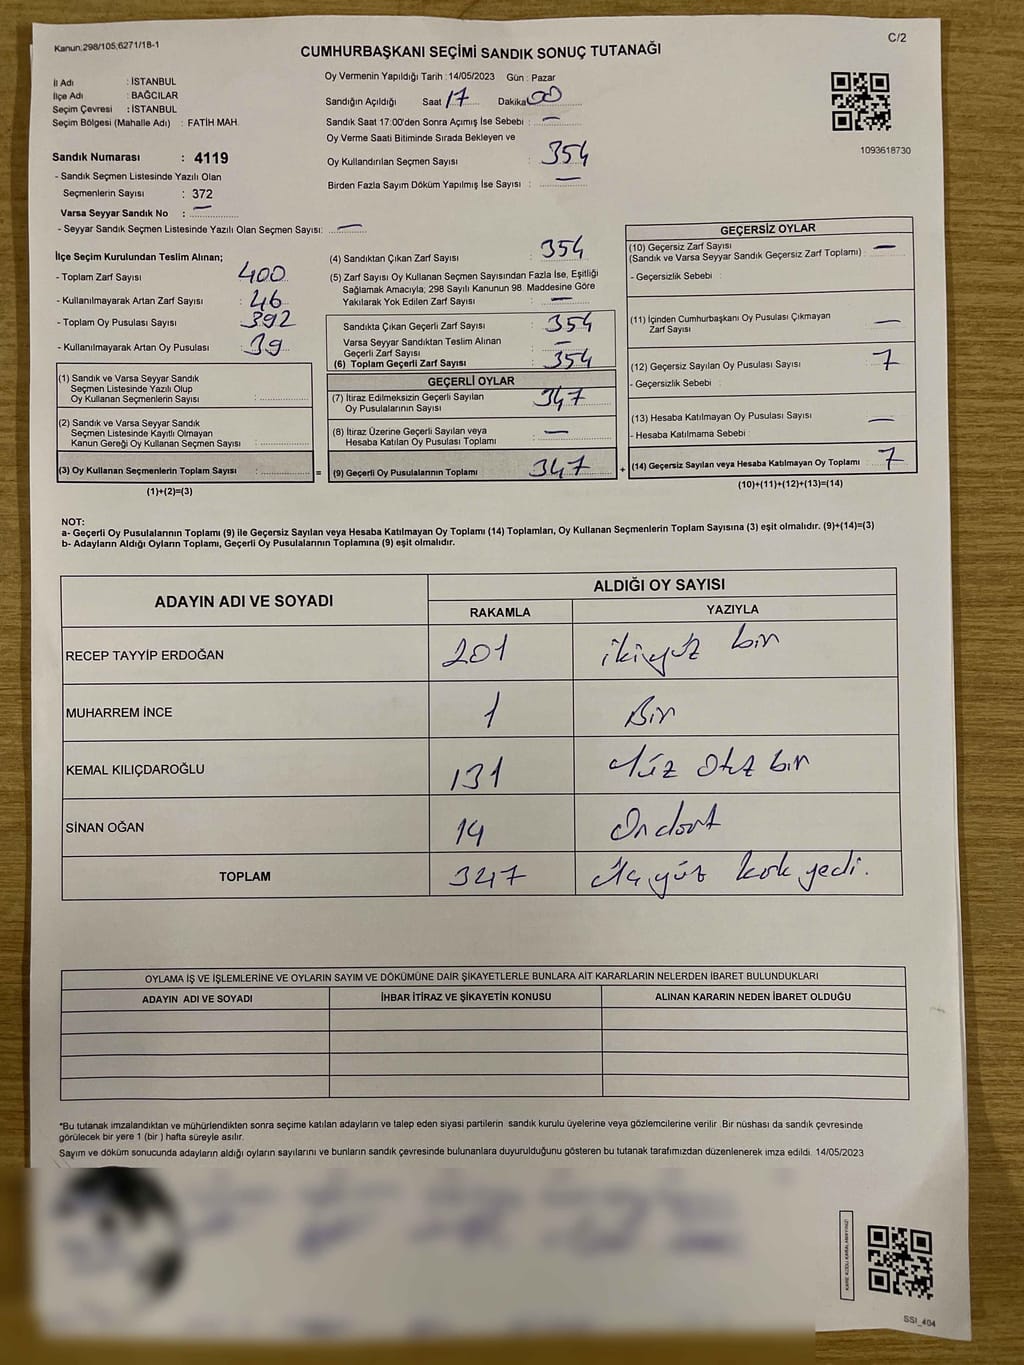 Kanun:298/105;6271/18-1
C/2
CUMHURBAŞKANI SEÇİMİ SANDIK SONUÇ TUTANAĞI
İl Adı : İSTANBUL
İlçe Adı : BAĞCILAR
Seçim Çevresi : İSTANBUL
Seçim Bölgesi (Mahalle Adı) : FATİH MAH.
Oy Vermenin Yapıldığı Tarih : 14/05/2023 Gün : Pazar
Sandığın Açıldığı Saat 17 Dakika 00
Sandık Saat 17:00'den Sonra Açımış İse Sebebi : —
Oy Verme Saati Bitiminde Sırada Bekleyen ve
Oy Kullandırılan Seçmen Sayısı : 354
Birden Fazla Sayım Döküm Yapılmış İse Sayısı : —
1093618730
Sandık Numarası : 4119
- Sandık Seçmen Listesinde Yazılı Olan
Seçmenlerin Sayısı : 372
Varsa Seyyar Sandık No : —
- Seyyar Sandık Seçmen Listesinde Yazılı Olan Seçmen Sayısı: —
İlçe Seçim Kurulundan Teslim Alınan;
- Toplam Zarf Sayısı : 400
- Kullanılmayarak Artan Zarf Sayısı : 46
- Toplam Oy Pusulası Sayısı : 392
- Kullanılmayarak Artan Oy Pusulası : 39
(1) Sandık ve Varsa Seyyar Sandık
Seçmen Listesinde Yazılı Olup
Oy Kullanan Seçmenlerin Sayısı :
(2) Sandık ve Varsa Seyyar Sandık
Seçmen Listesinde Kayıtlı Olmayan
Kanun Gereği Oy Kullanan Seçmen Sayısı :
(3) Oy Kullanan Seçmenlerin Toplam Sayısı : =
(1)+(2)=(3)
(4) Sandıktan Çıkan Zarf Sayısı : 354
(5) Zarf Sayısı Oy Kullanan Seçmen Sayısından Fazla İse, Eşitliği
Sağlamak Amacıyla; 298 Sayılı Kanunun 98. Maddesine Göre
Yakılarak Yok Edilen Zarf Sayısı : —
Sandıkta Çıkan Geçerli Zarf Sayısı : 354
Varsa Seyyar Sandıktan Teslim Alınan
Geçerli Zarf Sayısı : —
(6) Toplam Geçerli Zarf Sayısı : 354
GEÇERLİ OYLAR
(7) İtiraz Edilmeksizin Geçerli Sayılan
Oy Pusulalarının Sayısı : 347
(8) İtiraz Üzerine Geçerli Sayılan veya
Hesaba Katılan Oy Pusulası Toplamı : —
(9) Geçerli Oy Pusulalarının Toplamı : 347 +
GEÇERSİZ OYLAR
(10) Geçersiz Zarf Sayısı
(Sandık ve Varsa Seyyar Sandık Geçersiz Zarf Toplamı) : —
- Geçersizlik Sebebi :
(11) İçinden Cumhurbaşkanı Oy Pusulası Çıkmayan
Zarf Sayısı : —
(12) Geçersiz Sayılan Oy Pusulası Sayısı : 7
- Geçersizlik Sebebi :
(13) Hesaba Katılmayan Oy Pusulası Sayısı : —
- Hesaba Katılmama Sebebi :
(14) Geçersiz Sayılan veya Hesaba Katılmayan Oy Toplamı : 7
(10)+(11)+(12)+(13)=(14)
NOT:
a- Geçerli Oy Pusulalarının Toplamı (9) ile Geçersiz Sayılan veya Hesaba Katılmayan Oy Toplamı (14) Toplamları, Oy Kullanan Seçmenlerin Toplam Sayısına (3) eşit olmalıdır. (9)+(14)=(3)
b- Adayların Aldığı Oyların Toplamı, Geçerli Oy Pusulalarının Toplamına (9) eşit olmalıdır.
ADAYIN ADI VE SOYADI
ALDIĞI OY SAYISI
RAKAMLA YAZIYLA
RECEP TAYYİP ERDOĞAN 201 ikiyüz bir
MUHARREM İNCE 1 Bir
KEMAL KILIÇDAROĞLU 131 Yüz otuz bir
SİNAN OĞAN 14 Ondört
TOPLAM 347 Üçyüz kırk yedi.
OYLAMA İŞ VE İŞLEMLERİNE VE OYLARIN SAYIM VE DÖKÜMÜNE DAİR ŞİKAYETLERLE BUNLARA AİT KARARLARIN NELERDEN İBARET BULUNDUKLARI
ADAYIN ADI VE SOYADI İHBAR İTİRAZ VE ŞİKAYETİN KONUSU ALINAN KARARIN NEDEN İBARET OLDUĞU
*Bu tutanak imzalandıktan ve mühürlendikten sonra seçime katılan adayların ve talep eden siyasi partilerin sandık kurulu üyelerine veya gözlemcilerine verilir. Bir nüshası da sandık çevresinde
görülecek bir yere 1 (bir ) hafta süreyle asılır.
Sayım ve döküm sonucunda adayların aldığı oyların sayılarını ve bunların sandık çevresinde bulunanlara duyurulduğunu gösteren bu tutanak tarafımızdan düzenlenerek imza edildi. 14/05/2023
KARE KODU KARALAMAYINIZ!
SSI_404